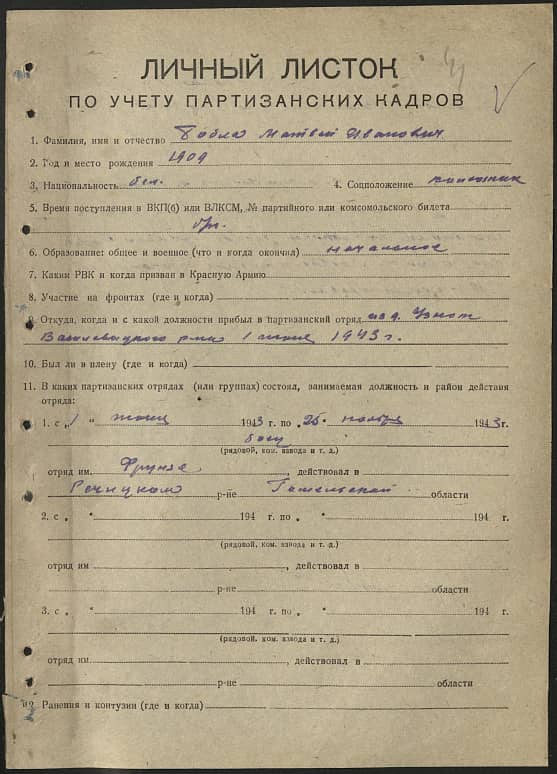 ЛИЧНЫЙ ЛИСТОК
ПО УЧЕТУ ПАРТИЗАНСКИХ КАДРОВ
1. Фамилия, имя и отчество Матвей Иванович
2. Год и место рождения 1909
3. Национальность бел. 4. Соцположение
5. Время поступления в ВКП(б) или ВЛКСМ, № партийного или комсомольского билета
б/п.
6. Образование: общее и военное (что и когда окончил) начальное
7. Каким РВК и когда призван в Красную Армию
8. Участие на фронтах (где и когда)
9. Откуда, когда и с какой должности прибыл в партизанский отряд из д. Узнаж
Василевицкого р-на 1 июня 1943 г.
10. Был ли в плену (где и когда)
11. В каких партизанских отрядах (или группах) состоял, занимаемая должность и район действия
отряда:
1. с „1 " июня 1943 г. по „25. ноября 1943 г.
боец
(рядовой, ком. взвода и т. д.)
отряд им. Фрунзе, действовал в
Речицком р-не Гомельской области
2. с „ " 194 г. по „ " 194 г.
(рядовой, ком. взвода и т. д.)
отряд им , действовал в
р-не области
3. с „ " 194 г. по „ " 194 г.
(рядовой, ком. взвода и т. д.)
отряд им. , действовал в
р-не области
12. Ранения и контузии (где и когда)